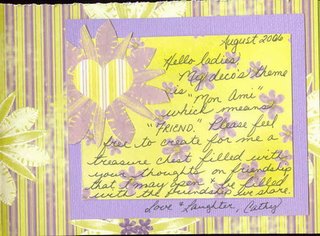 August 2006
Hello ladies
My deco's theme
is "Mon Ami"
which means
"FRIEND." Please feel
free to create for me a
treasure chest filled with
your thoughts on friendship
that I may open & be filled
with the friendship we share.
Love & Laughter, Cathy